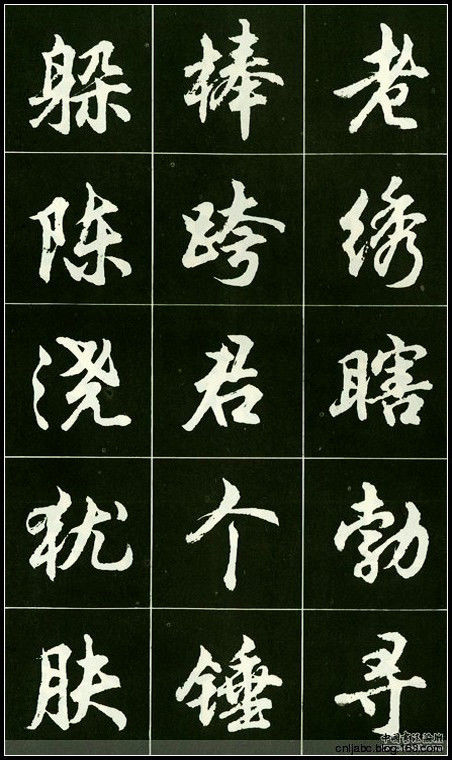 老绣瞎勃寻
棒跨君个锤
躲陈浇犹肤
中国书法论坛
cnljabc.blog.163.com